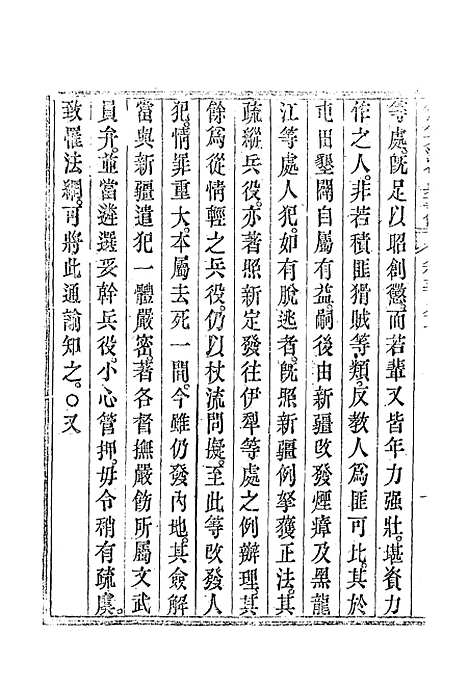 等處。旣足以昭創懲。而若輩又皆年力强壯。堪資力
作之人。非若積匪猾賊等類。反敎人爲匪可比。其於
屯田墾闢。自屬有益。嗣後由新疆改發煙瘴及黑龍
江等處人犯。如有脫逃者。旣照新疆例拏獲正法。其
疏縱兵役。亦著照新定發往伊犁等處之例辦理。其
餘爲從情輕之兵役。仍以杖流問擬。至此等改發人
犯。情罪重大。本屬去死一間。今雖仍發內地。其僉解
當與新疆遣犯一體嚴密。著各督撫嚴飭所屬文武
員弁。並當遴選妥幹兵役。小心管押。毋令稍有疏虞。
致罹法網。可將此通諭知之。○又